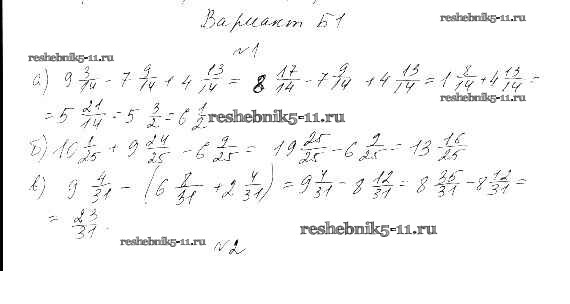 Вариант Б1
reshebnik5-11.ru
№1
reshebnik5-11.ru
а) 9 3/14 - 7 9/14 + 4 13/14 = 8 17/14 - 7 9/14 + 4 13/14 = 1 8/14 + 4 13/14 =
reshebnik5-11.ru
= 5 21/14 = 5 3/2 = 6 1/2
reshebnik5-11.ru
б) 10 1/25 + 9 24/25 - 6 9/25 = 19 25/25 - 6 9/25 = 13 16/25
в) 9 4/31 - (6 8/31 + 2 4/31) = 9 4/31 - 8 12/31 = 8 35/31 - 8 12/31 =
= 23/31.
reshebnik5-11.ru
reshebnik5-11.ru
№2